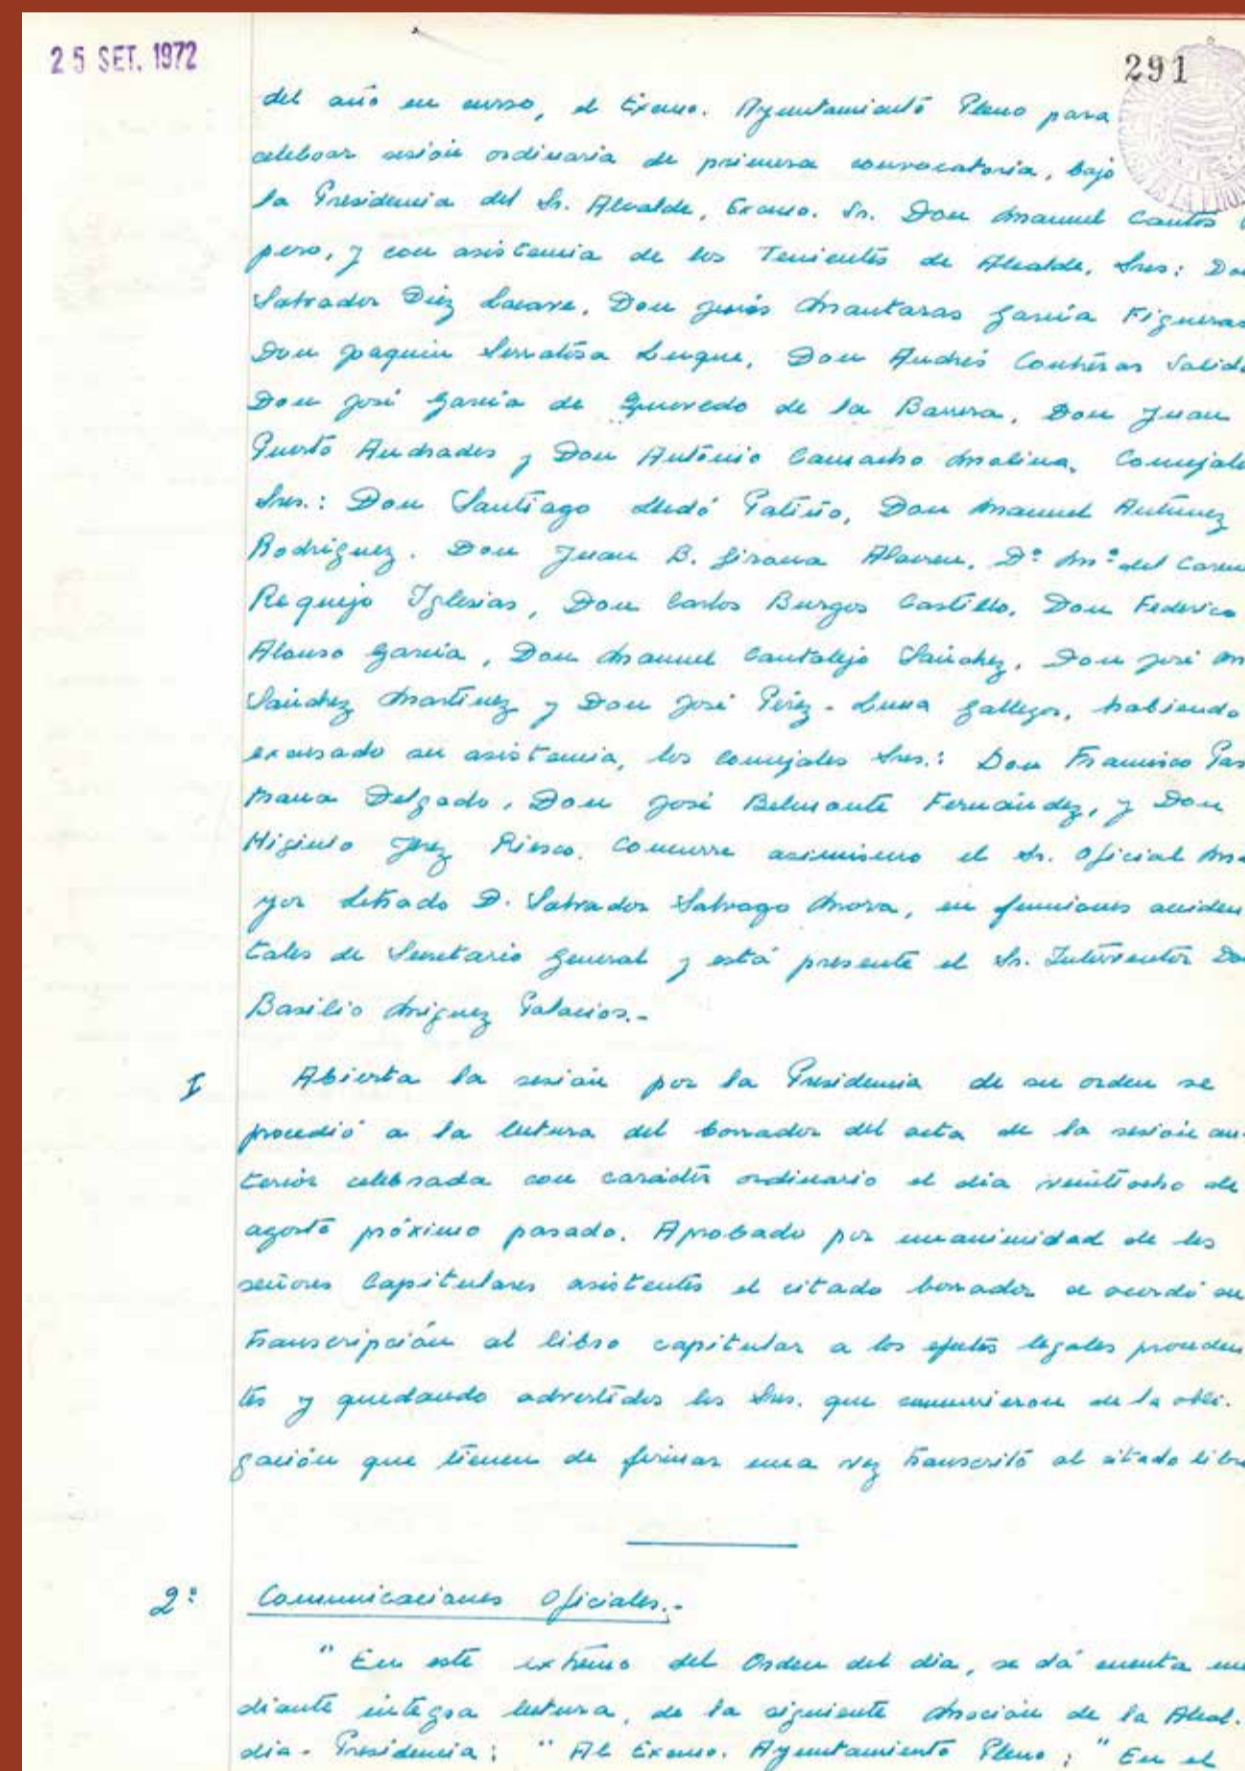 25 SET. 1972
291
del año en curso, el Excmo. Ayuntamiento Pleno para
celebrar sesión ordinaria de primera convocatoria, bajo
la Presidencia del Sr. Alcalde, Excmo. Sr. Don Manuel Cantos
pero, y con asistencia de los Tenientes de Alcalde, Sres: Don
Salvador Díez Lacave, Don Jesús Mantaras García Figueras
Don Joaquín Serratosa Luque, Don Andrés Contreras Salido
Don José García de Quevedo de la Barrera, Don Juan
Puerto Andrades y Don Antonio Camacho Molina, Concejales
Sres.: Don Santiago Lledó Patiño, Don Manuel Antúnez
Rodríguez. Don Juan B. Alavreu, Dª Mª del Carmen
Requejo Iglesias, Don Carlos Burgos Castillo, Don Federico
Alonso García, Don Manuel Cantalejo Sánchez, Don José Mª
Sánchez Martínez y Don José Pérez-Luna Gallegos, habiendo
excusado su asistencia, los concejales Sres.: Don Francisco Pas
trana Delgado, Don José Belmonte Fernández, y Don
Higinio Jerez Riesco. Concurre asimismo el Sr. Oficial Ma
yor Letrado D. Salvador Salvago Mora, en funciones acciden
tales de Secretario General y está presente el Sr. Interventor Don
Basilio Miguez Palacios.-
I Abierta la sesión por la Presidencia de su orden se
procedió a la lectura del borrador del acta de la sesión an-
terior celebrada con carácter ordinario el día veintiocho de
agosto próximo pasado. Aprobado por unanimidad de los
señores Capitulares asistentes el citado borrador se acordó su
transcripción al libro capitular a los efectos legales proceden
tes y quedando advertidos los Sres. que concurrieron de la obli-
gación que tienen de firmar una vez transcrito al citado libro
2º Comunicaciones Oficiales.-
" En este extremo del Orden del día, se dá cuenta me
diante íntegra lectura, de la siguiente Moción de la Alcal-
día-Presidencia: " Al Excmo. Ayuntamiento Pleno: " En el